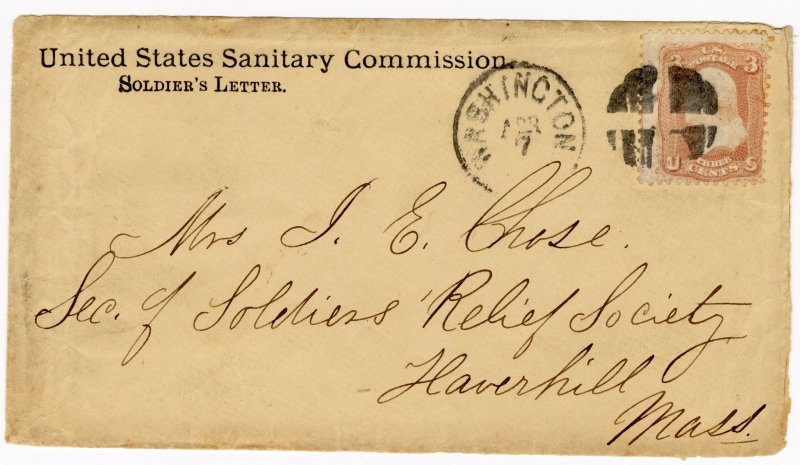 United States Sanitary Commission
SOLDIER'S LETTER.
WASHINGTON
APR
7
3 U.S. POSTAGE 3
U THREE CENTS S
Mrs J. E. Chase.
Sec. of Soldiers' Relief Society
Haverhill
Mass.